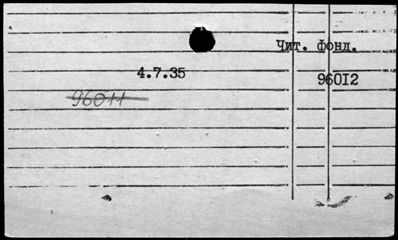 Чит. фонд.
4.7.35
960I2
96011